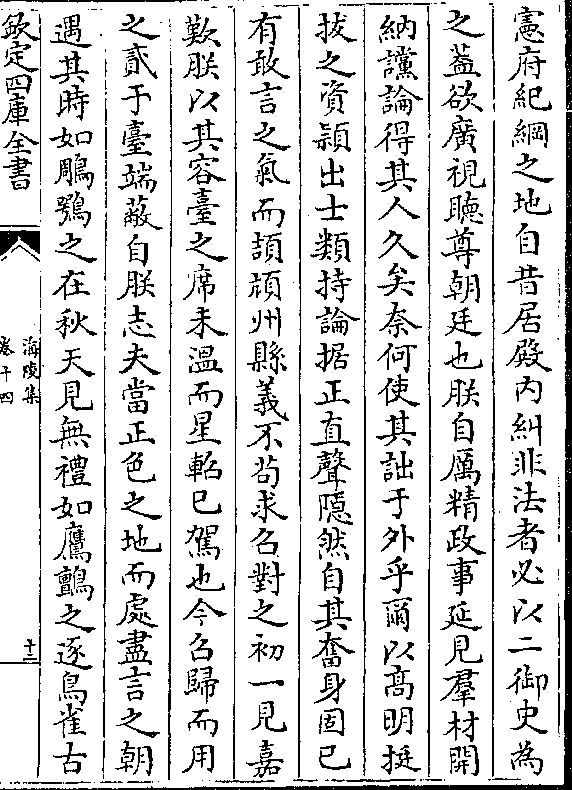 憲府紀綱之地自昔居殿内糾非法者必以二御史為
之葢欲廣視聽尊朝廷也朕自厲精政事延見羣材開
納讜論得其人久矣奈何使其詘于外乎爾以髙明挺
拔之資頴出士類持論据正直聲隱然自其奮身固已
有敢言之氣而頡頏州縣義不茍求召對之初一見嘉
歎朕以其容臺之席未温而星軺已駕也今召歸而用
之貳于臺端蔽自朕志夫當正色之地而處盡言之朝
遇其時如鵰鶚之在秋天見無禮如鷹鸇之逐鳥雀古
欽定四庫全書
海陵集
卷十四
十三